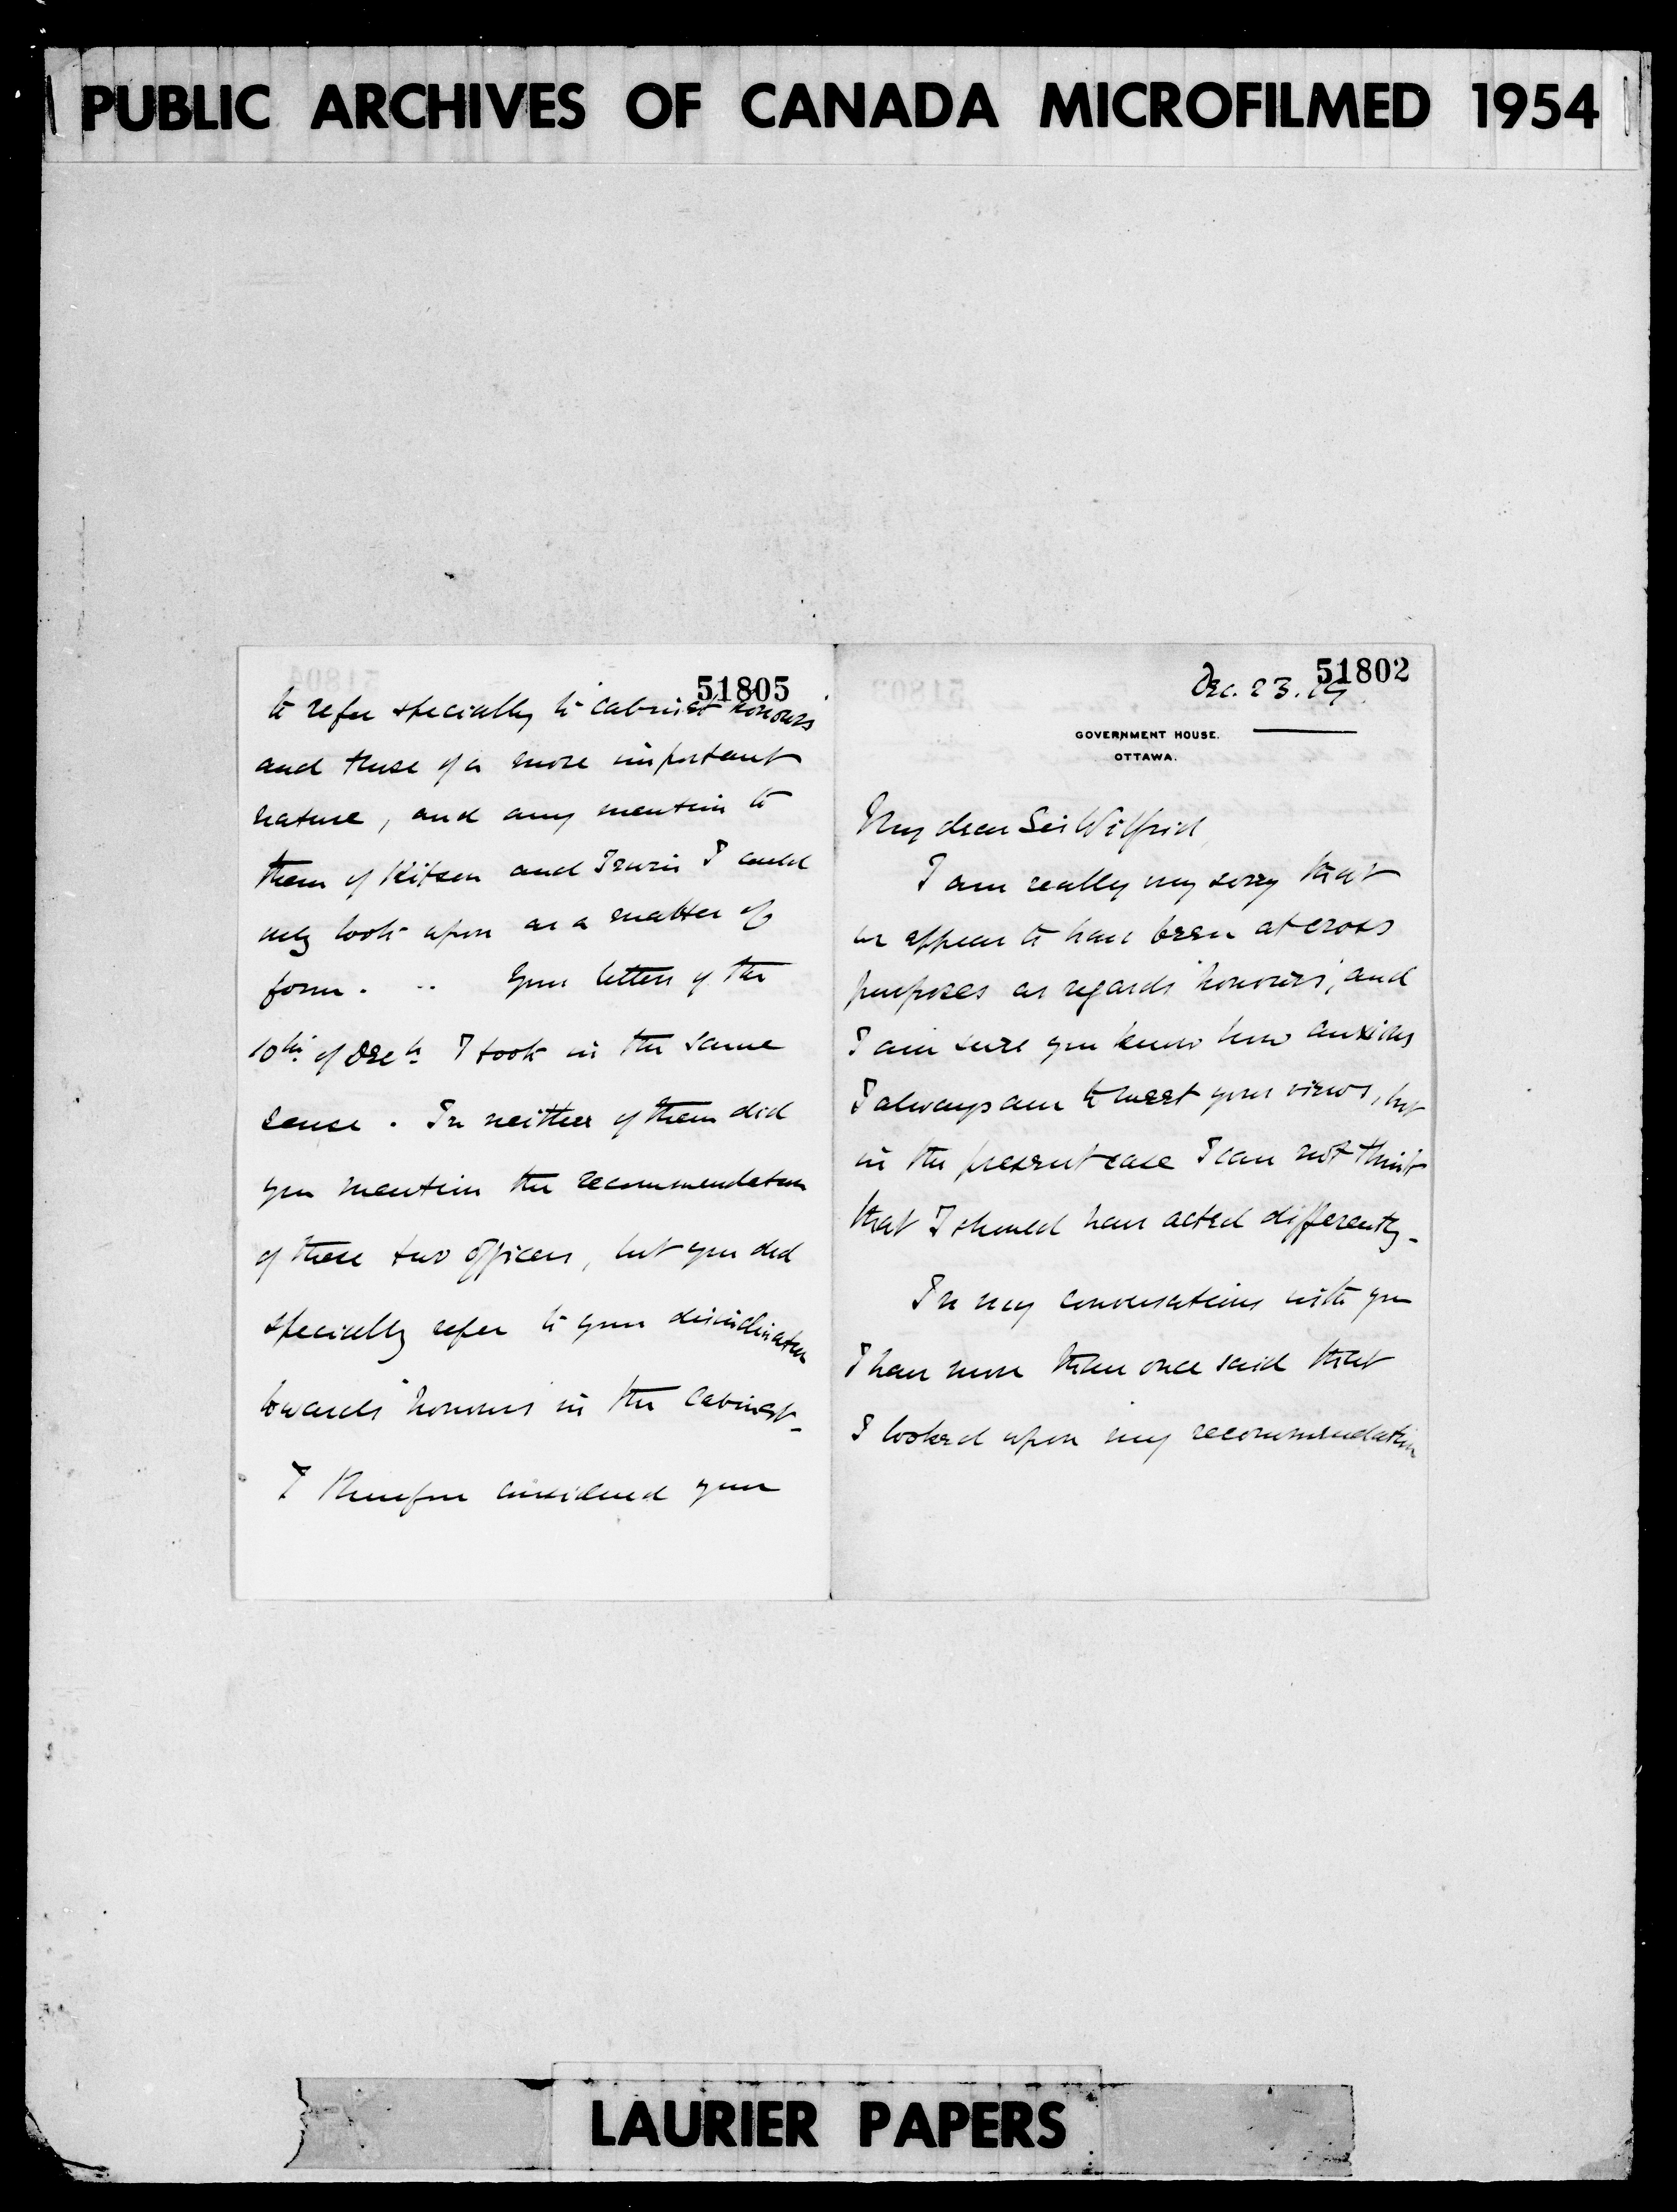 PUBLIC ARCHIVES OF CANADA MICROFILMED 1954
51805
to refer specially to "cabinet honours
and those of a more important
nature, and any mention to
them of Kitson and Irwin I could
only look upon as a matter of
form. .. Your letter of the
10th of Decr I took in the same
sense. In neither of them did
you mention the recommendation
of these two officers, but you did
specially refer to your disinclination
towards "honours in the Cabinet_
I therefore considered your
51802
Dec. 23.
GOVERNMENT HOUSE.
OTTAWA.
My dear Sir Wilfrid,
I am really very sorry that
we appear to have been at cross
purposes as regards 'honours', and
I am sure you know how anxious
I always am to meet your views, but
in the present case I can not think
that I should have acted differently_
In my conversations with you
I have more than once said that
I looked upon my recommendation
LAURIER PAPERS